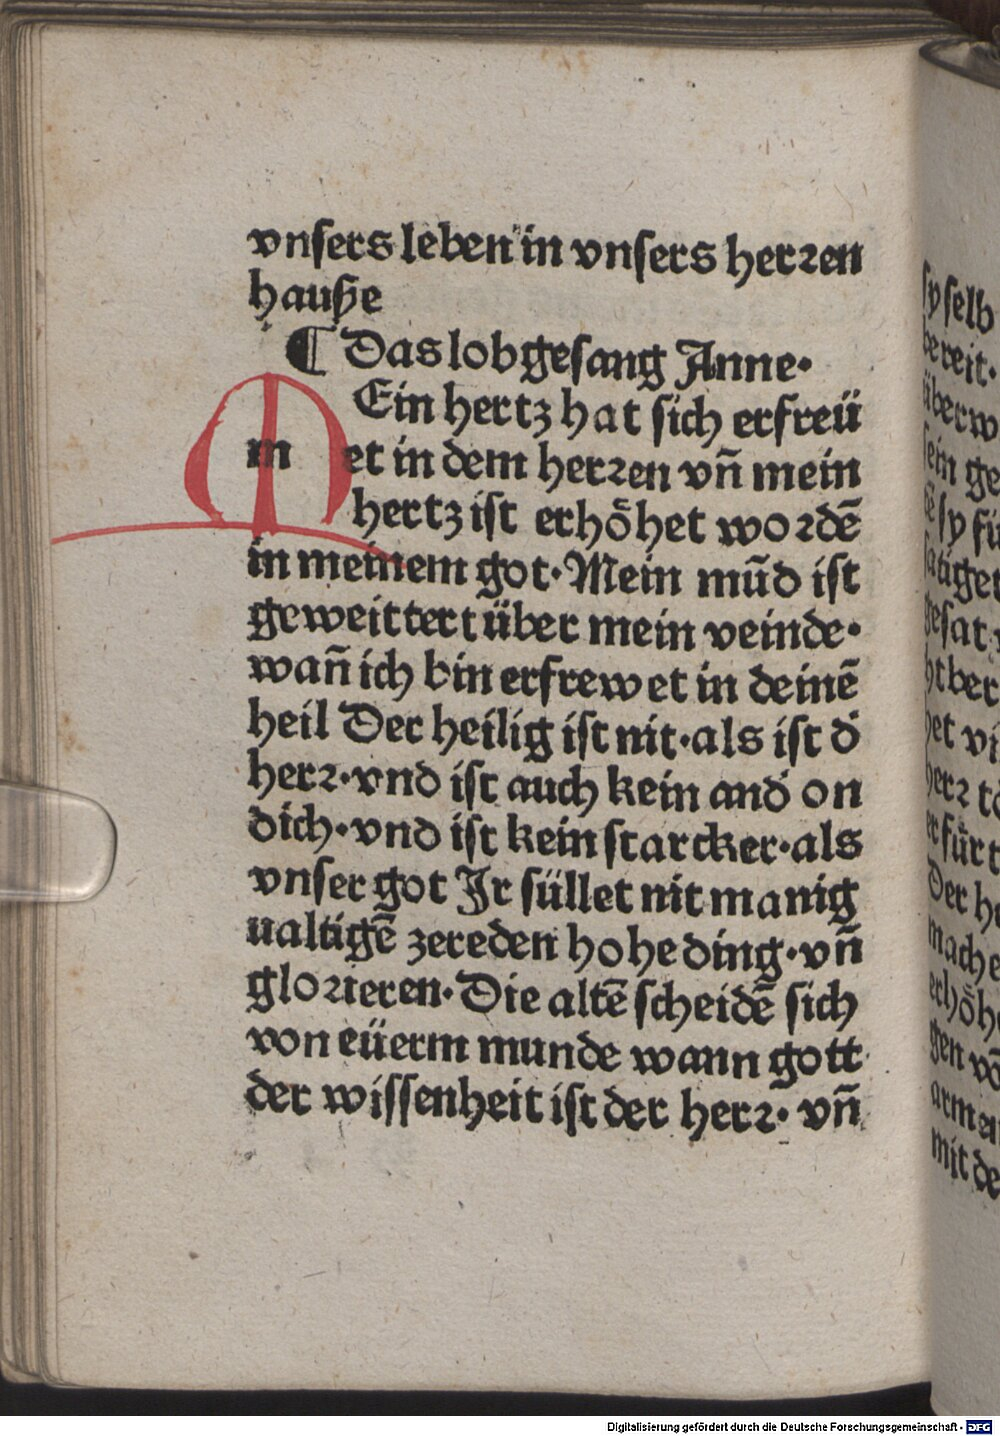 vnsers leben in vnsers herꝛen
hauße
¶ Das lobgesang Anne·
MEin hertz hat sich erfreü
m et in dem herꝛen vñ mein
hertz ist erhöhet woꝛdē
in meinem got· Mein mūd ist
geweittert über mein veinde·
wañ ich bin erfrewet in deinē
heil Der heilig ist nit·als ist d̕
herꝛ·vnd ist auch kein and̕ on
dich·vnd ist kein starcker·als
vnser got Jr süllet nit manig
ualtigē zereden hohe ding·vñ
gloꝛieren· Die altē scheidē sich
von eüerm munde wann gott
der wissenheit ist der herꝛ· vñ
sy selb
bereit·
überw
sein ge
sy fü
satiget
gesat
ht ber
het vi
herꝛ
er für t
Der he
mache
erhöh
gen vō
arm
mit de
Digitalisierung gefördert durch die Deutsche Forschungsgemeinschaft - DFG